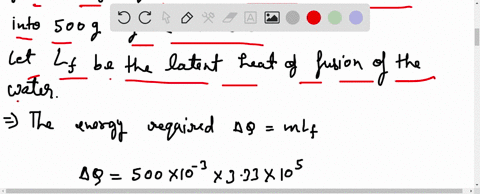 into 500g
Let Lf be the latent heat of fusion of the
water.
⇒ The energy required ΔQ = mLf
ΔQ = 500 × 10⁻³ × 3.33 × 10⁵